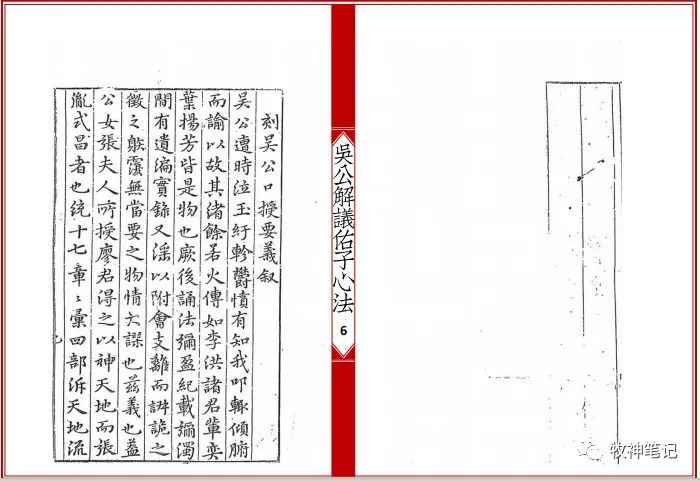 刻吴公口授要義叙
吴公遭時泣玉紆軫欝憤有知我叩輙傾腑
而諭以故其渚餘若火傳如李洪諸君輩奕
葉揚芳皆是物也厥後誦法彌盈紀載彌濁
間有遺編實錄又滛以附會支離而詳詭之
徵之躲覆無當要之物情大謬也兹義也蓋
公女張夫人所授廖君得之以神天地而張
胤式昌者也统十七章〻彙四部泝天地流
吳公解議佑子心法
6
牧神笔记